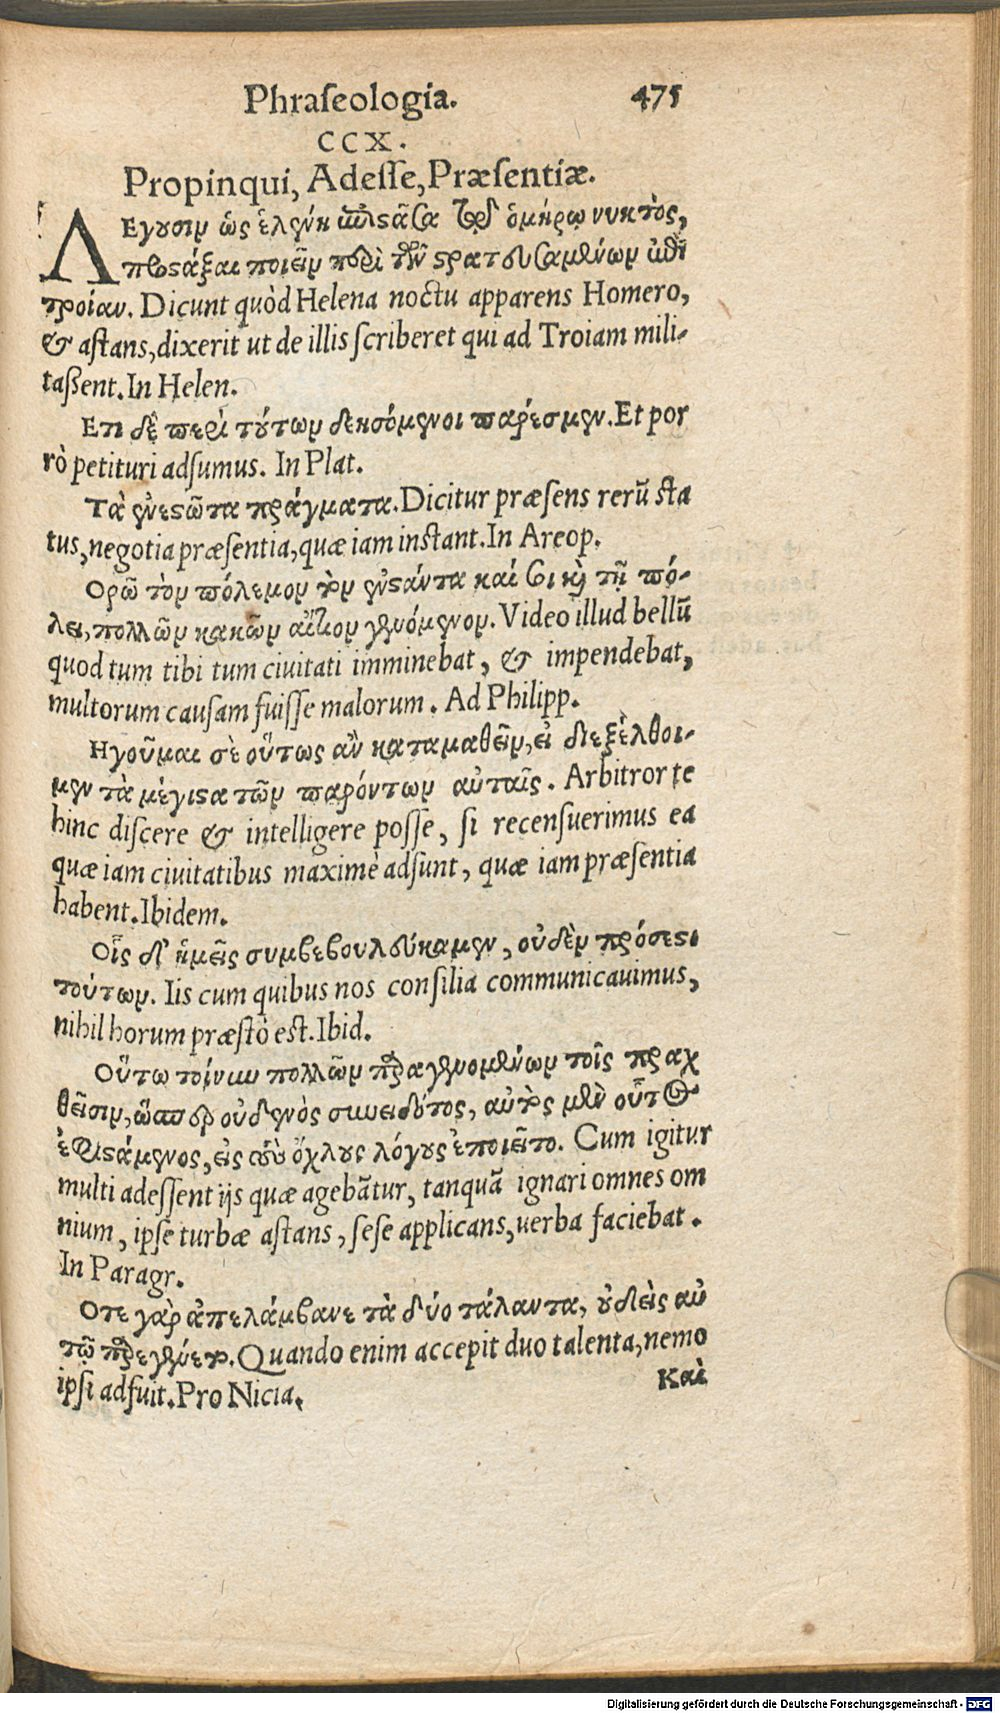 Phraſeologia. 475
CCX.
Propinqui, Adeſſe, Præſentiæ.
Λ Εγουσιν ὡς ἑλένη ἐπιστᾶσα τῷ ὁμήρῳ νυκτὸς,
προστάξαι ποιεῖν περὶ τῶν στρατευσαμένων ἐπὶ
τροίαν. Dicunt quòd Helena noctu apparens Homero,
& aſtans, dixerit ut de illis ſcriberet qui ad Troiam mili-
taßent. In Helen.
Ετι δὲ περὶ τούτων δεησόμενοι πάρεσμεν. Et por
rò petituri adſumus. In Plat.
Τὰ ἐνεστῶτα πράγματα. Dicitur præſens rerū ſta
tus, negotia præſentia, quæ iam inſtant. In Areop.
Ορῶ τὸν πόλεμον τὸν ἐνστάντα καί σοι καὶ τῇ πό-
λει, πολλῶν κακῶν αἴτιον γενόμενον. Video illud bellū
quod tum tibi tum ciuitati imminebat, & impendebat,
multorum cauſam fuiſſe malorum. Ad Philipp.
Ηγοῦμαι σὲ οὕτως ἂν καταμαθεῖν, εἰ διεξέλθοι-
μεν τὰ μέγιστα τῶν παρόντων αὐταῖς. Arbitror te
hinc diſcere & intelligere poſſe, ſi recenſuerimus ea
quæ iam ciuitatibus maximè adſunt, quæ iam præſentia
habent. Ibidem.
Οἷς δ' ἡμεῖς συμβεβουλεύκαμεν, οὐδὲν πρόσεστι
τούτων. Iis cum quibus nos conſilia communicauimus,
nihil horum præſtò eſt. Ibid.
Οὕτω τοίνυν πολλῶν παραγενομένων τοῖς πραχ
θεῖσιν, ὥσπερ οὐδενὸς συνειδότος, αὐτὸς μὲν οὗτος
ἐπιστάμενος, εἰς τοὺς ὄχλους λόγους ἐποιεῖτο. Cum igitur
multi adeſſent ijs quæ agebātur, tanquā ignari omnes om
nium, ipſe turbæ aſtans, ſeſe applicans, uerba faciebat.
In Paragr.
Οτε γὰρ ἀπελάμβανε τὰ δύο τάλαντα, οὐδεὶς αὐ
τῷ παρεγένετο. Quando enim accepit duo talenta, nemo
ipſi adfuit. Pro Nicia. Καὶ
Digitalisierung gefördert durch die Deutsche Forschungsgemeinschaft - DFG